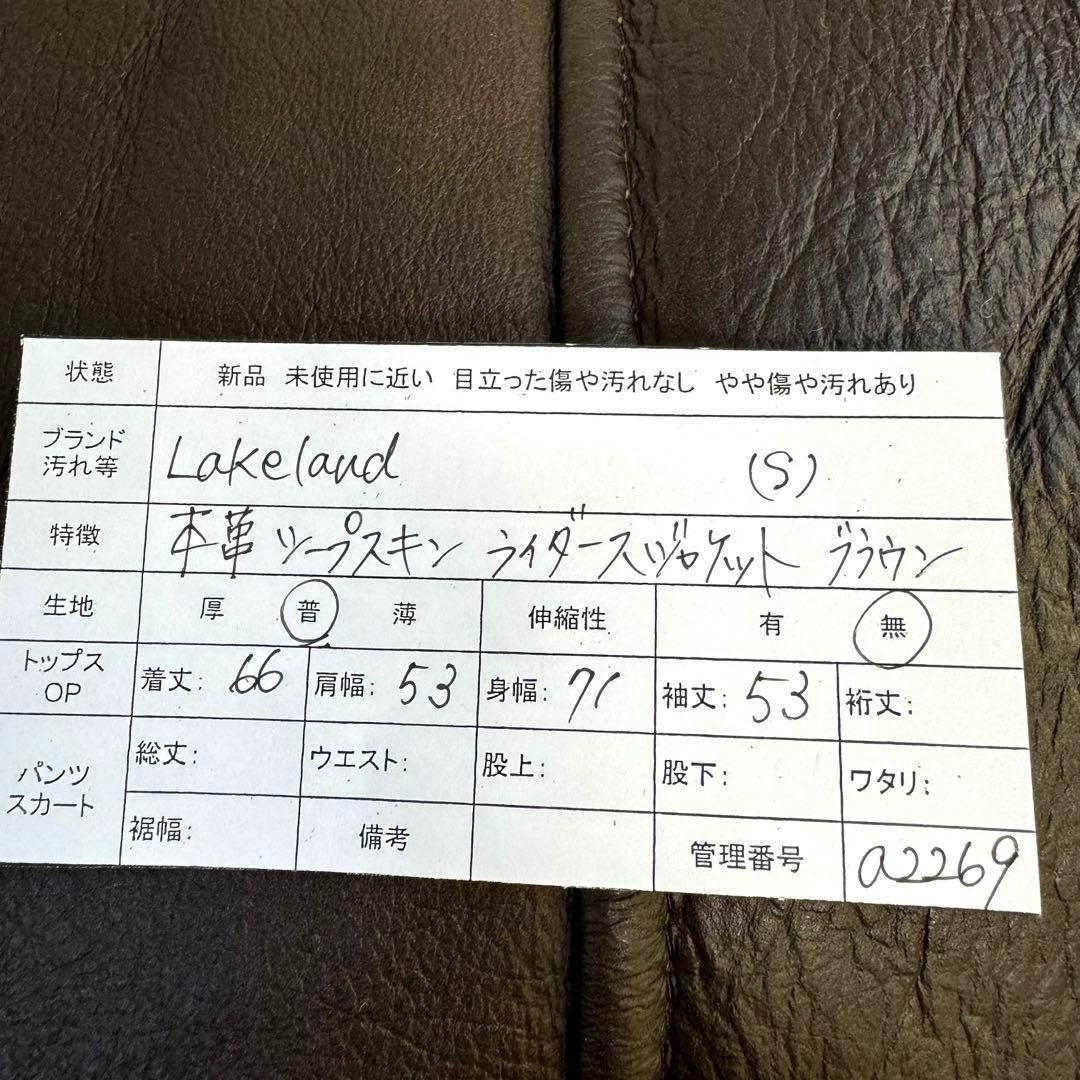 状態 新品 未使用に近い 目立った傷や汚れなし やや傷や汚れあり
ブランド
汚れ等 Lakeland (S)
特徴 本革 シープスキン ライダースジャケット ブラウン
生地 厚 普 薄 伸縮性 有 無
トップス
OP 着丈: 66 肩幅: 53 身幅: 71 袖丈: 53 裄丈:
パンツ
スカート 総丈: ウエスト: 股上: 股下: ワタリ:
裾幅: 備考 管理番号 a2269